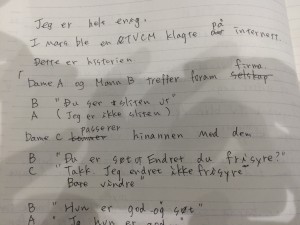 Jeg er helt enig.
I mars ble en RTVCM klagte på internett.
Dette er historien
「Dame A og Mann B treffer foran firma
B "Du ser sliten ut"
A (Jeg er ikke sliten)
Dame C passerer hinannen med den
B "Du er søt ut Endret du frisyre?"
C "Takk. Jeg endret ikke frisyre"
Bare vindre"
B "Hun er god og søt"
A hun er god